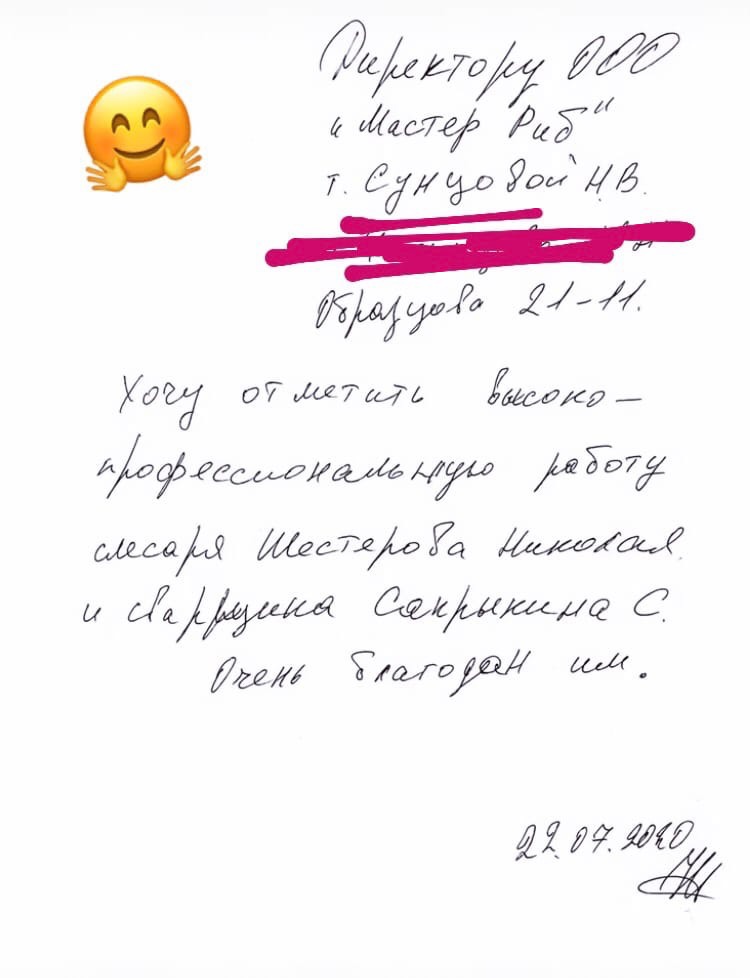 Директору ООО
"Мастер Риб"
т. Сунцовой Н.В.
Образцова 21-11.
Хочу отметить высоко-
профессиональную работу
слесаря Шестерова Николая
и сварщика Сакрыкина С.
Очень благодан им.
22.07.2020